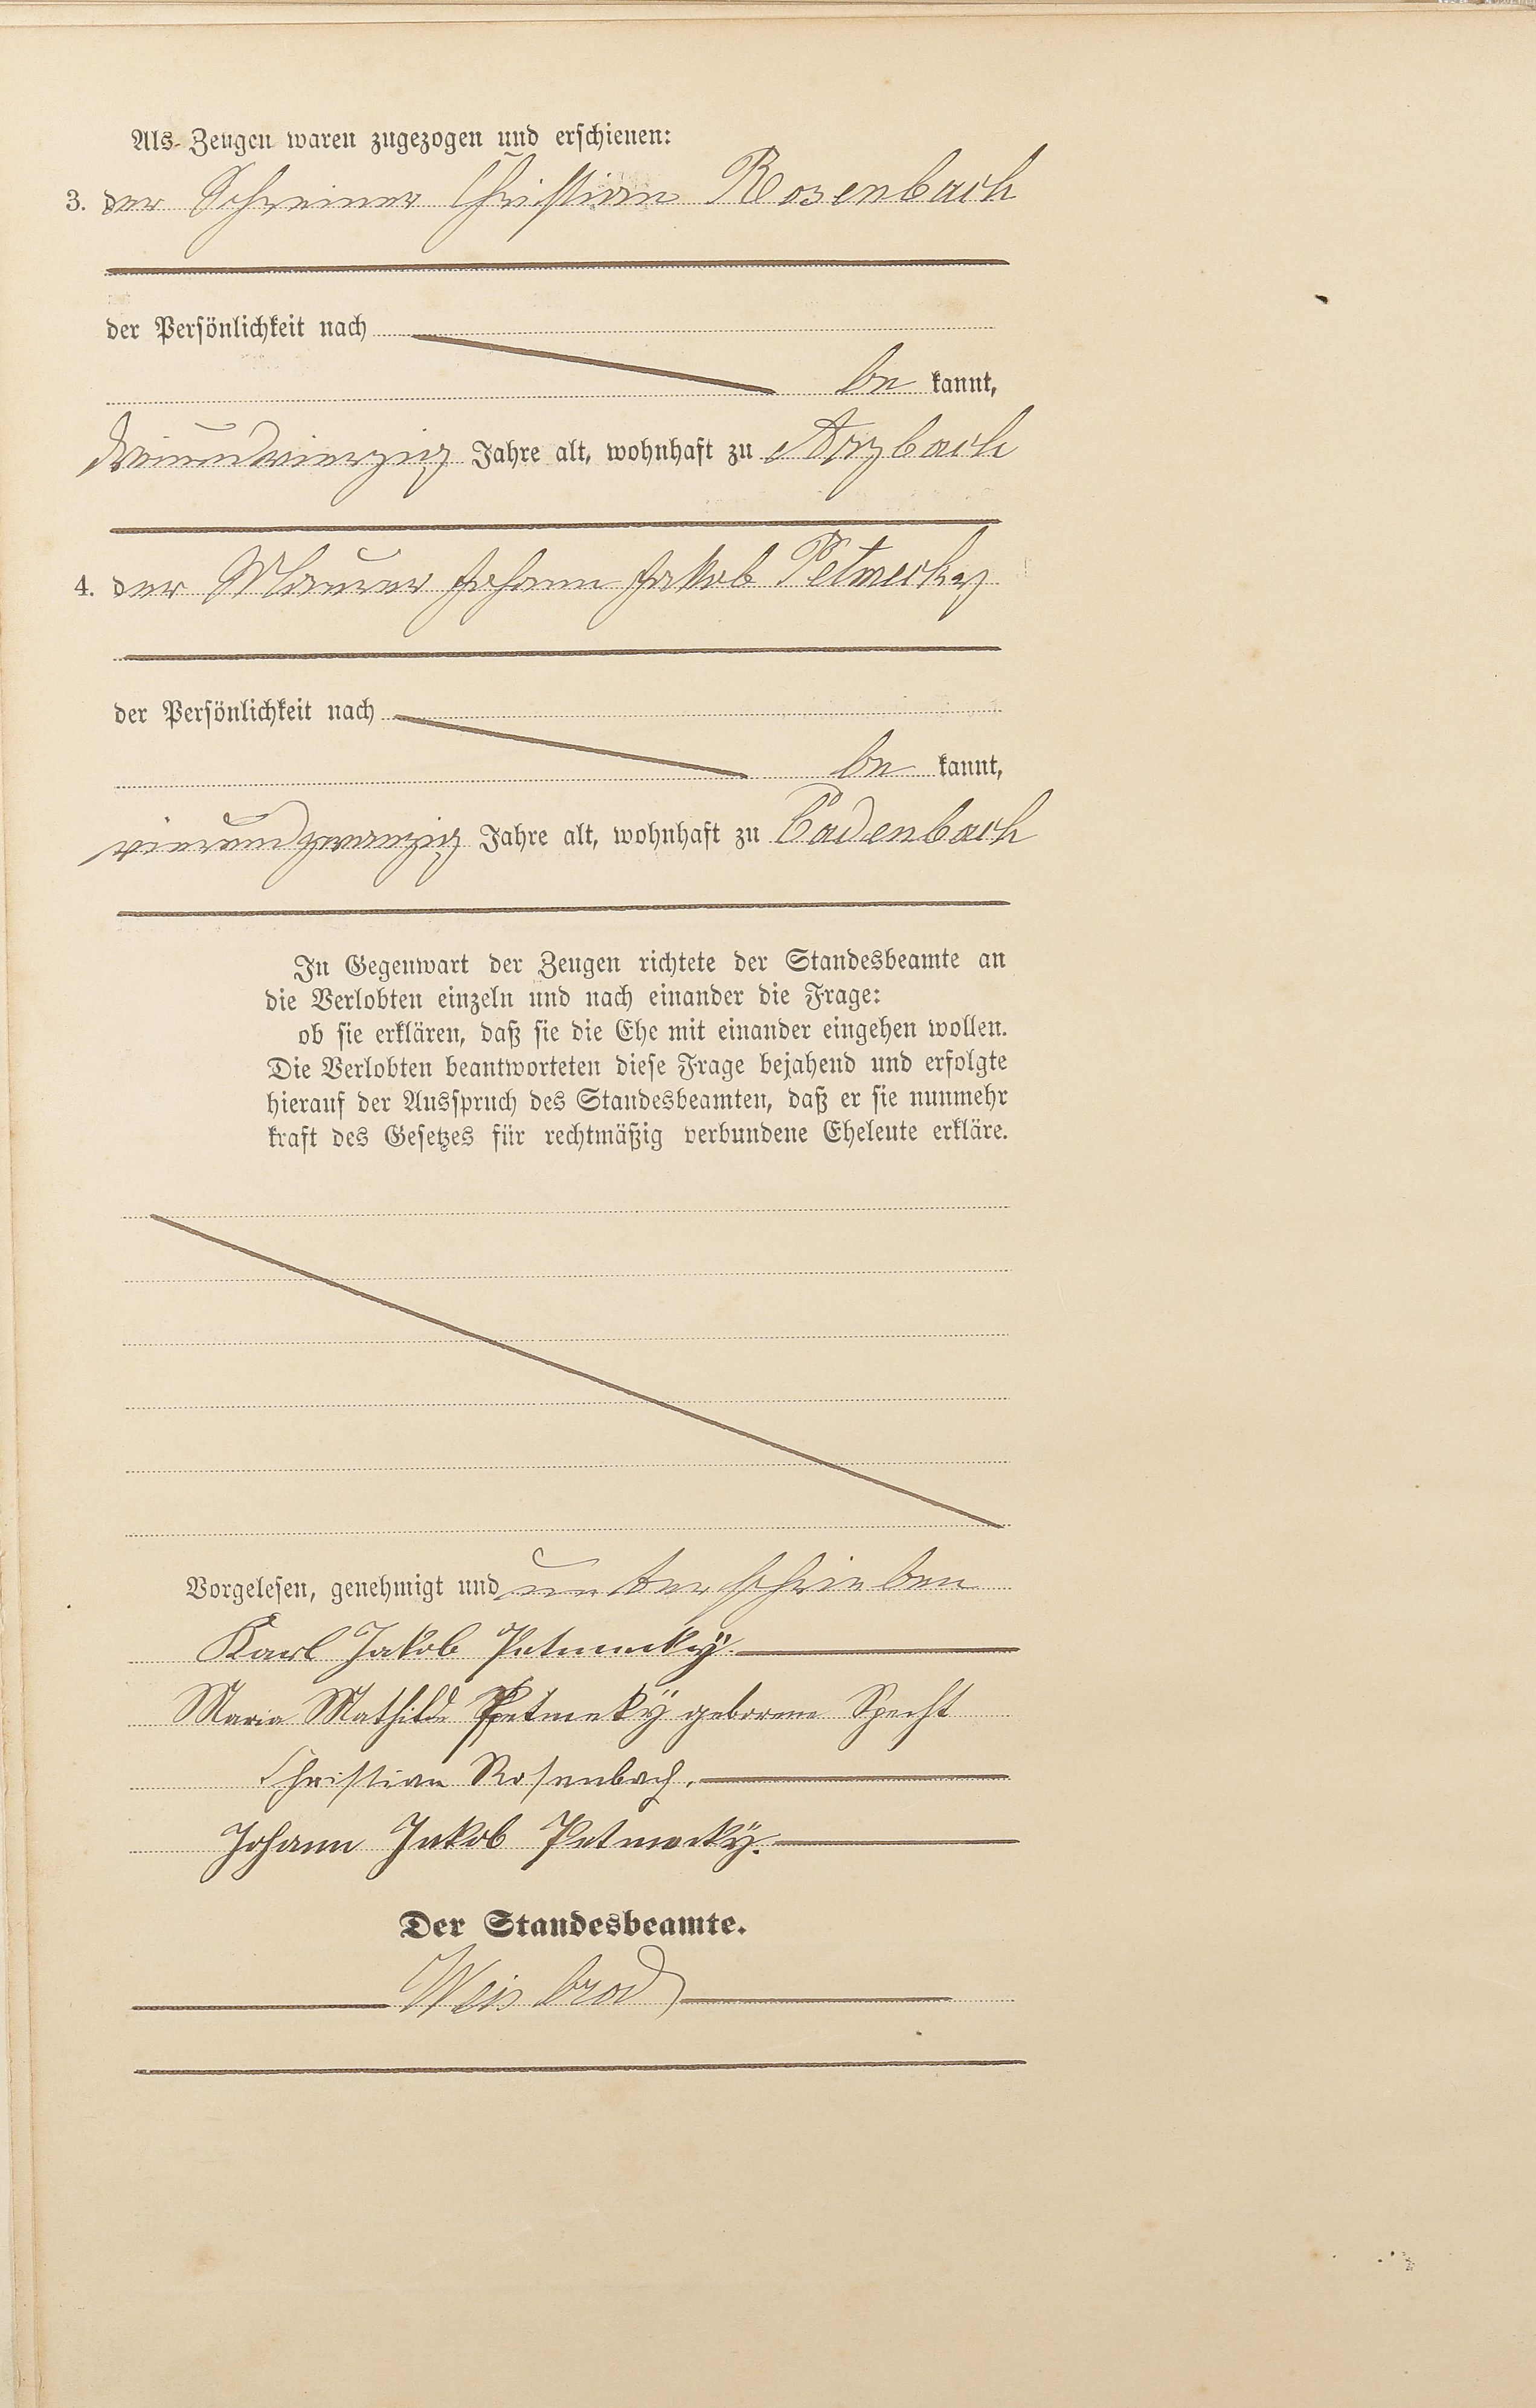 Als Zeugen waren zugezogen und erschienen:
3. der Schreiner Christian Rosenbach
der Persönlichkeit nach
be kannt,
dreiundvierzig Jahre alt, wohnhaft zu Arzbach
4. der Maurer Johann Jakob Petmecky
der Persönlichkeit nach
be kannt,
vierundzwanzig Jahre alt, wohnhaft zu Cadenbach
In Gegenwart der Zeugen richtete der Standesbeamte an
die Verlobten einzeln und nach einander die Frage:
ob sie erklären, daß sie die Ehe mit einander eingehen wollen.
Die Verlobten beantworteten diese Frage bejahend und erfolgte
hierauf der Ausspruch des Standesbeamten, daß er sie nunmehr
kraft des Gesetzes für rechtmäßig verbundene Eheleute erkläre.
Vorgelesen, genehmigt und unterschrieben
Karl Jakob Petmecky.
Maria Mathilde Petmeky geborene Specht
Christian Rosenbach.
Johann Jakob Petmecky.
Der Standesbeamte.
Weisbrod